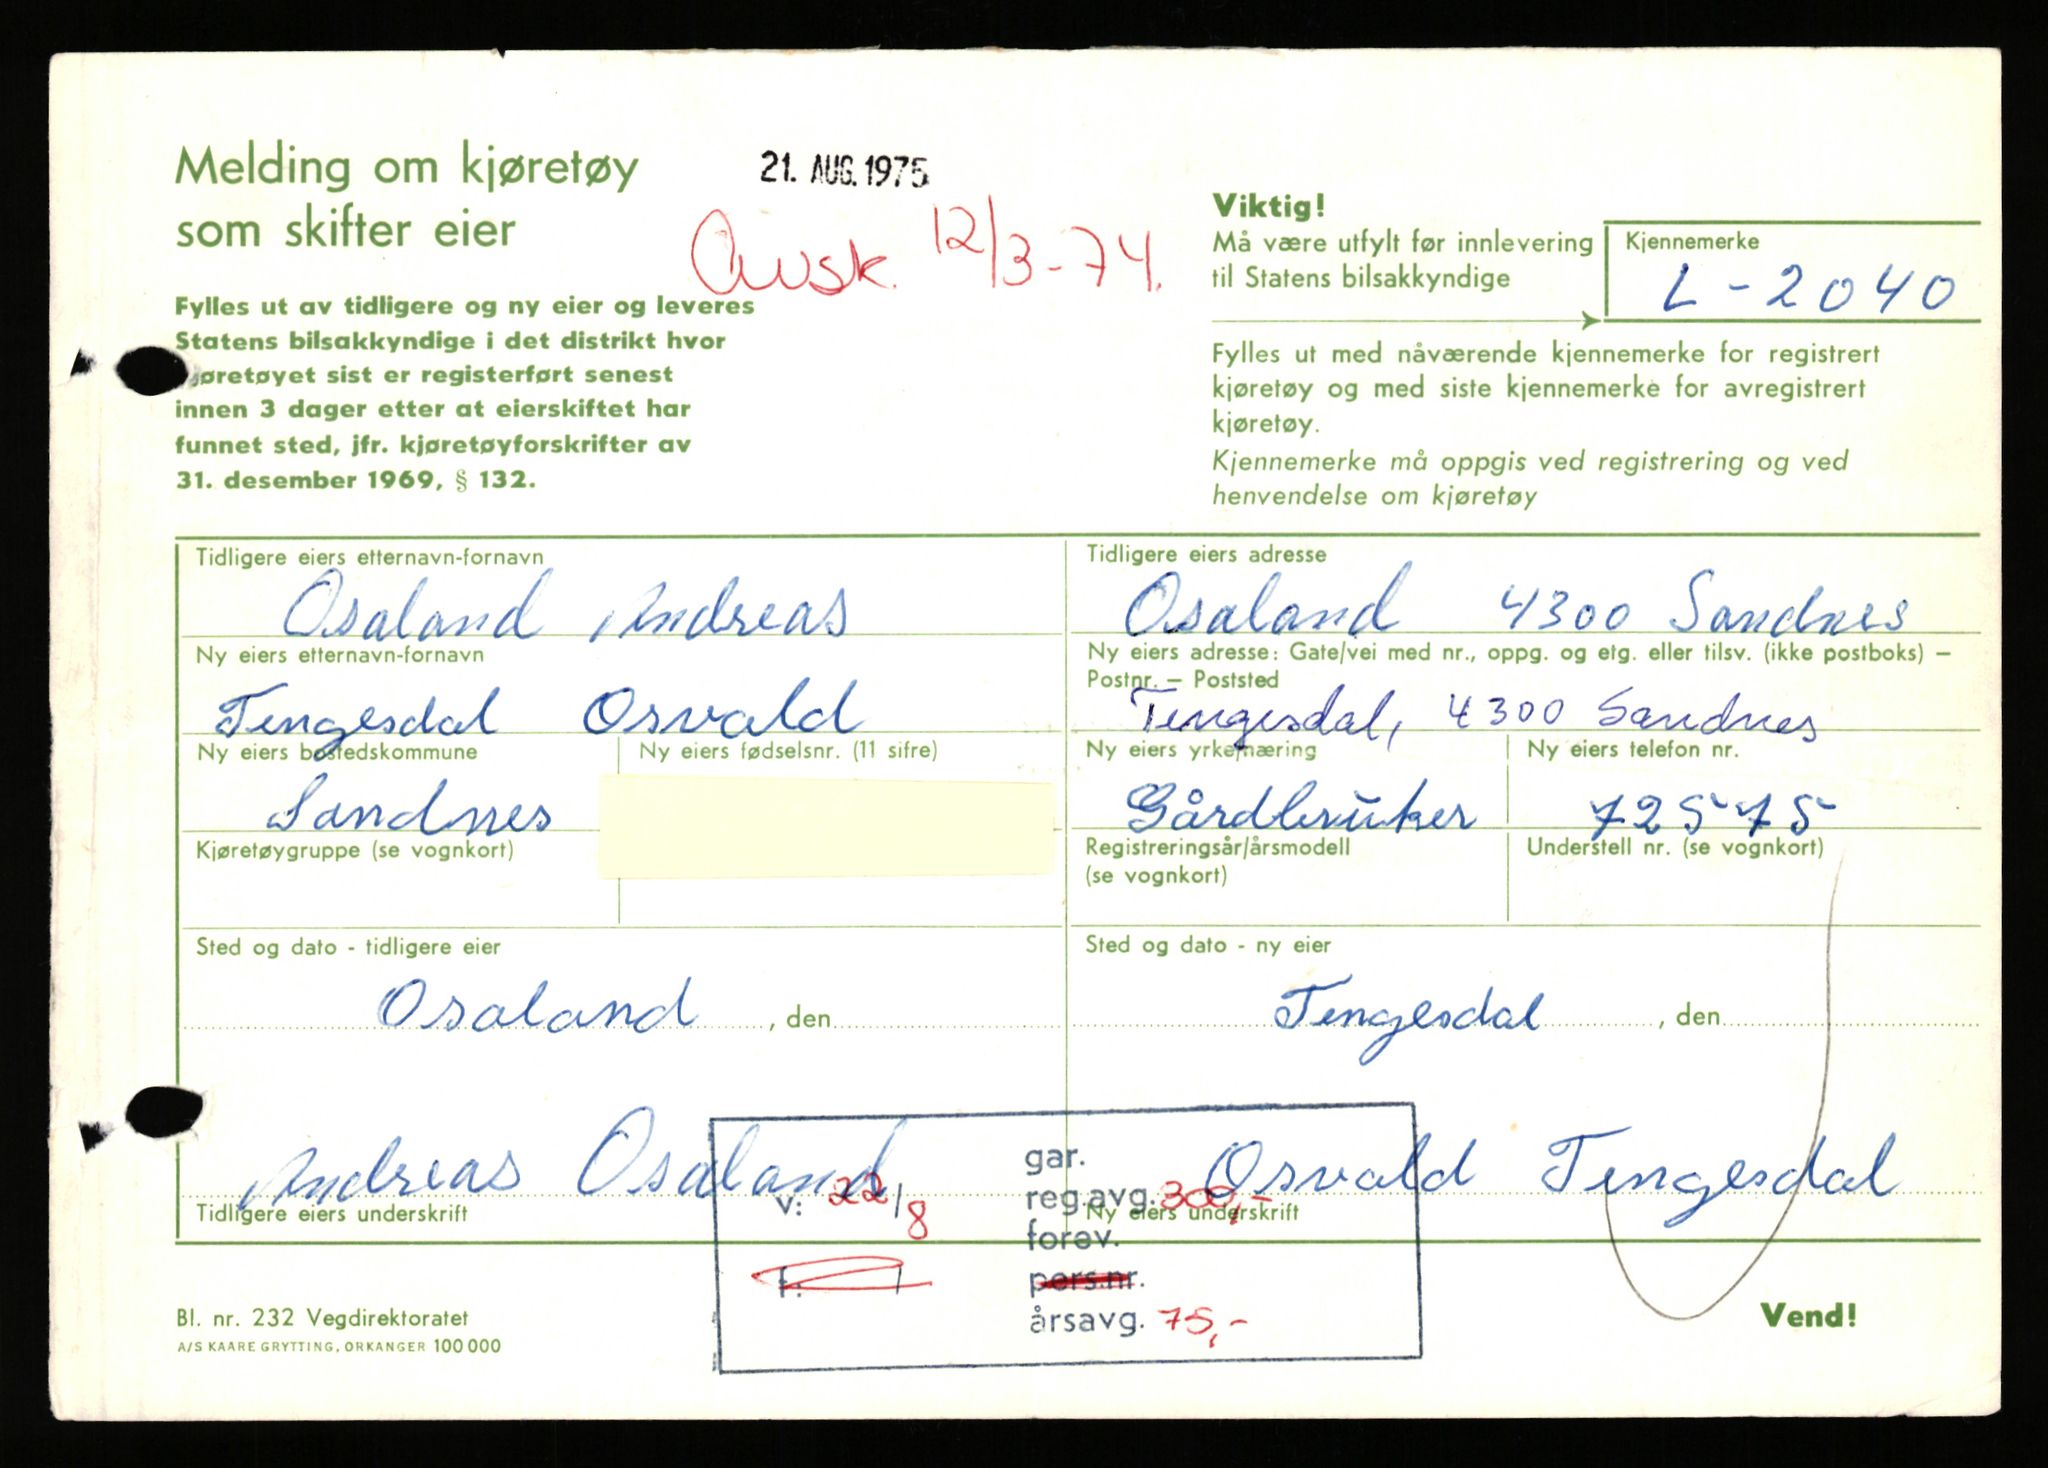 Melding om kjøretøy
som skifter eier
21. AUG. 1975
Avsk. 12/3-74.
Fylles ut av tidligere og ny eier og leveres
Statens bilsakkyndige i det distrikt hvor
kjøretøyet sist er registerført senest
innen 3 dager etter at eierskiftet har
funnet sted, jfr. kjøretøyforskrifter av
31. desember 1969, § 132.
Viktig!
Må være utfylt før innlevering
til Statens bilsakkyndige
Kjennemerke
L-2040
Fylles ut med nåværende kjennemerke for registrert
kjøretøy og med siste kjennemerke for avregistrert
kjøretøy.
Kjennemerke må oppgis ved registrering og ved
henvendelse om kjøretøy
Tidligere eiers etternavn-fornavn
Osaland Andreas
Tidligere eiers adresse
Osaland 4300 Sandnes
Ny eiers etternavn-fornavn
Tengesdal Osvald
Ny eiers adresse: Gate/vei med nr., oppg. og etg. eller tilsv. (ikke postboks) –
Postnr. – Poststed
Tengesdal, 4300 Sandnes
Ny eiers bostedskommune
Sandnes
Ny eiers fødselsnr. (11 sifre)
Ny eiers yrke/næring
Gårdbruker
Ny eiers telefon nr.
72575
Kjøretøygruppe (se vognkort)
Registreringsår/årsmodell
(se vognkort)
Understell nr. (se vognkort)
Sted og dato - tidligere eier
Osaland, den
Sted og dato - ny eier
Tengesdal, den
Andreas Osaland
Tidligere eiers underskrift
Osvald Tengesdal
Ny eiers underskrift
v: 22/8
gar.
reg.avg. 300,-
forev.
pers.nr.
årsavg. 75,-
Bl. nr. 232 Vegdirektoratet
A/S KAARE GRYTTING, ORKANGER 100 000
Vend!